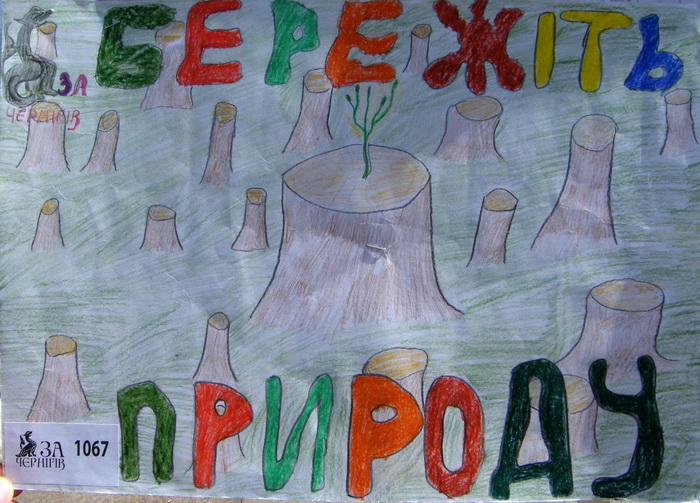 БЕРЕЖІТЬ
ЗА
ЧЕРНІГІВ
ПРИРОДУ
ЗА 1067
ЧЕРНІГІВ